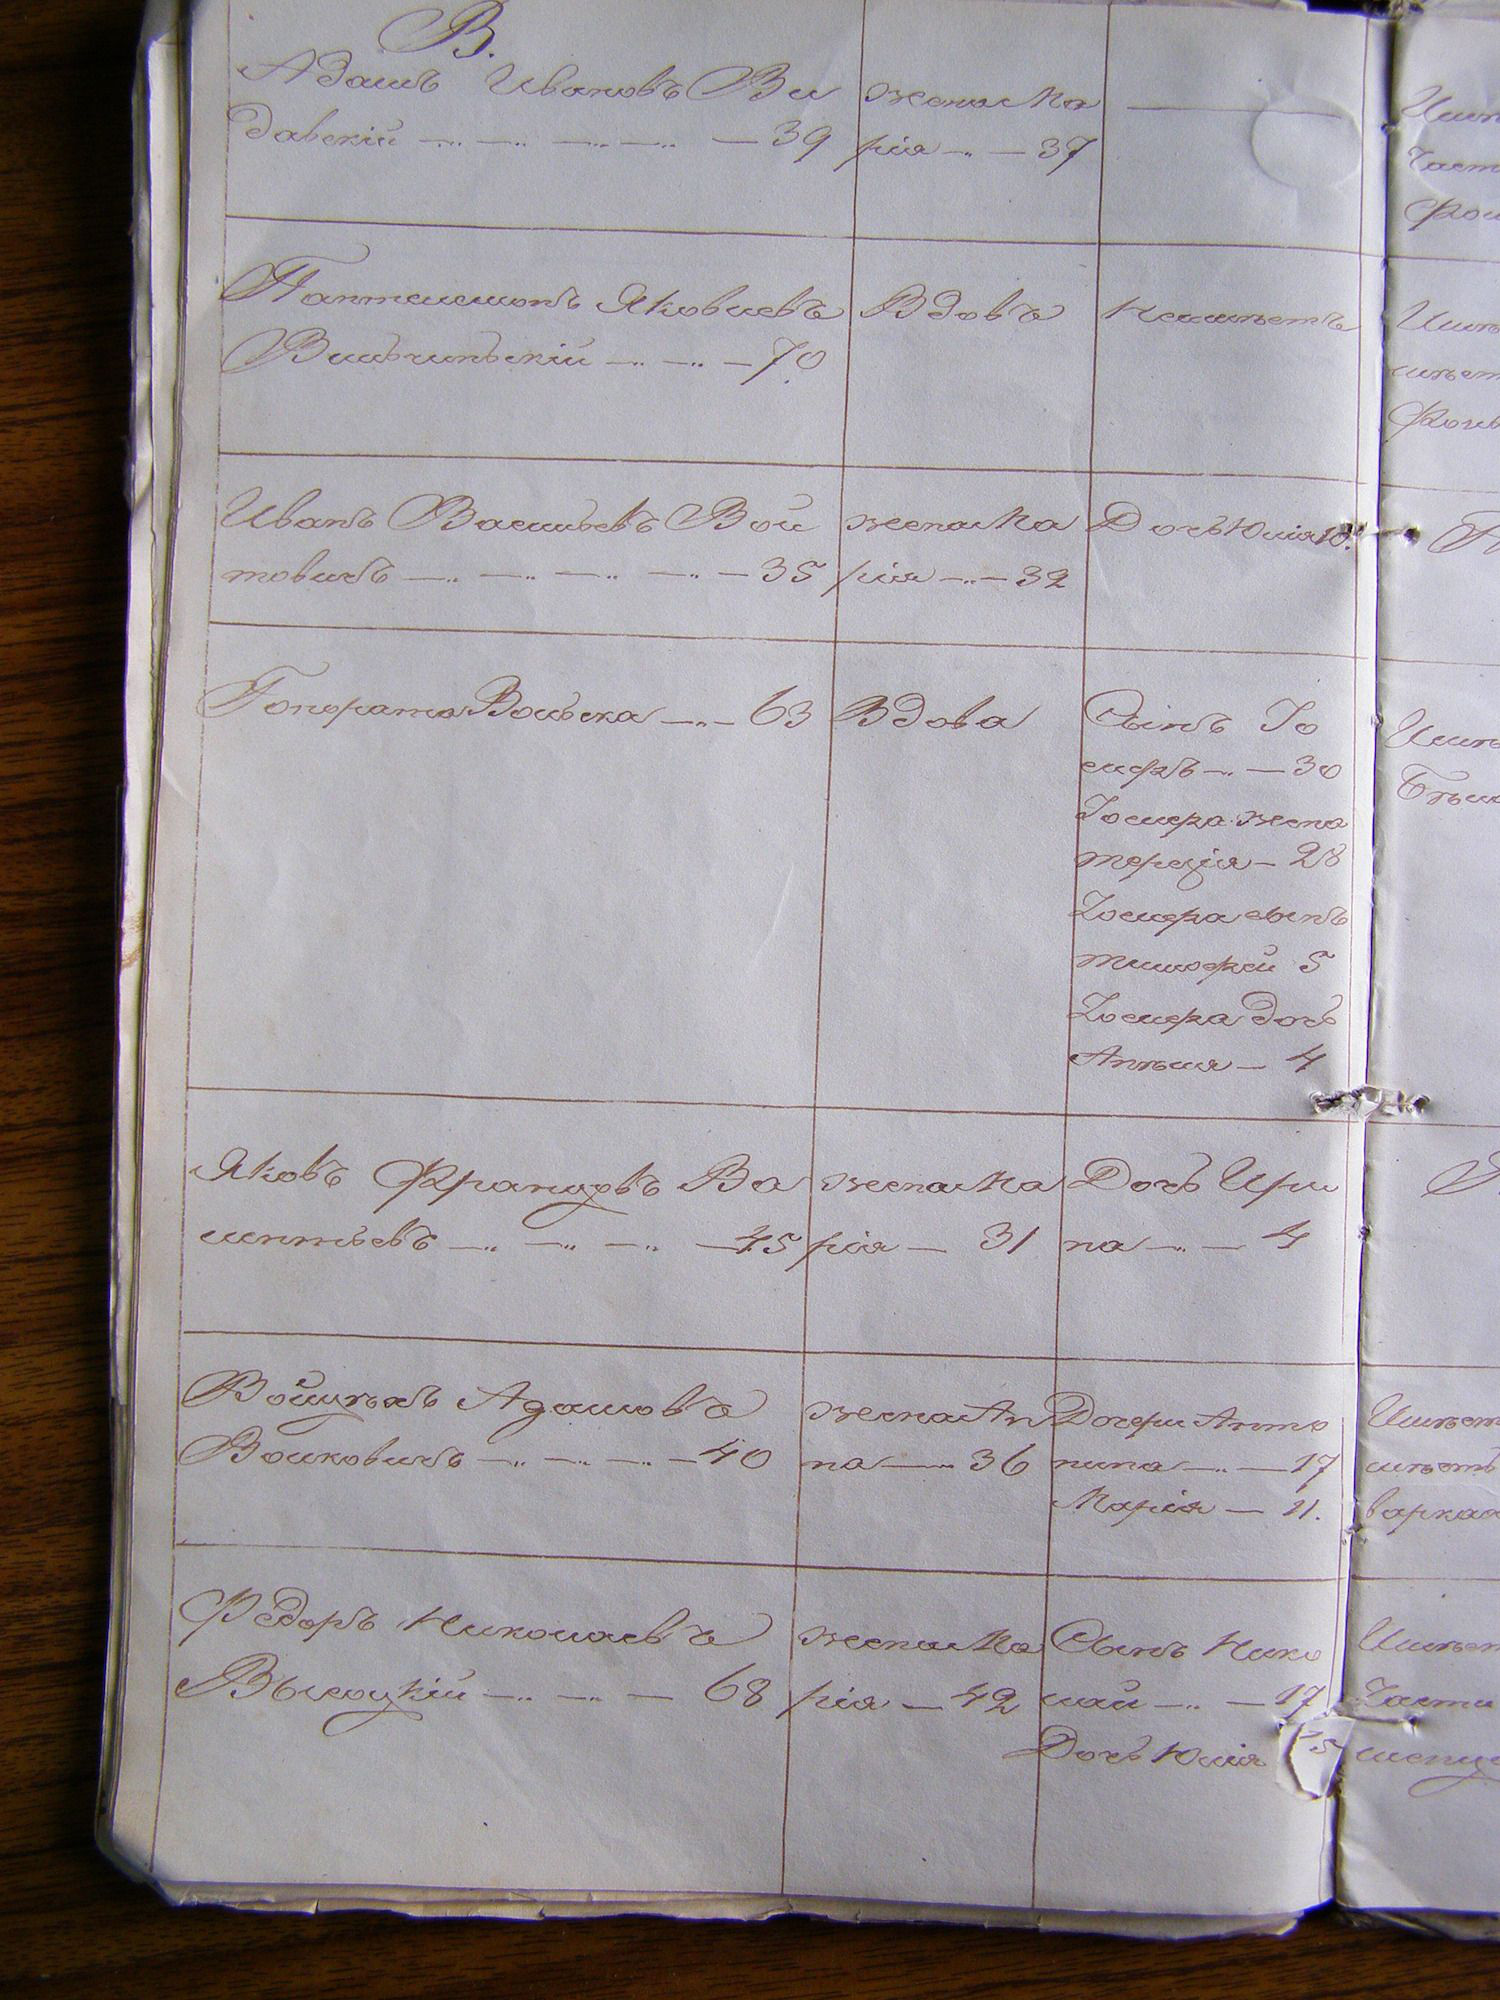 В.
Адамъ Ивановъ Ви
давскій — — — — 39
жена Ма
рія — — 37
Пантелемонъ Яковлевъ
Вильчинскій — — — 70
Вдовъ
Неимѣетъ
Иванъ Васильевъ Вой
товичъ — — — — 35
жена Ма
рія — — 32
Дочь Юлія 10.
Гонората Вольска — — 63
Вдова
Сынъ Іо
сифъ — — 30
Іосифа жена
терезія — 28
Іосифа сынъ
тимофей 5
Іосифа дочь
Анѣля — 4
Яковъ Францовъ Ва
лентьевъ — — — 45
жена Ма
рія — 31
Дочь Ири
на — — 4
Войцѣхъ Адамовъ
Волковичъ — — — 40
жена Ан
на — 36
Дочери Анто
нина — — 17
Марія — 11.
Федоръ Николаевъ
Высоцкій — — — 68
жена Ма
рія — 42
Сынъ Нико
лай — — 17
Дочь Юлія 15